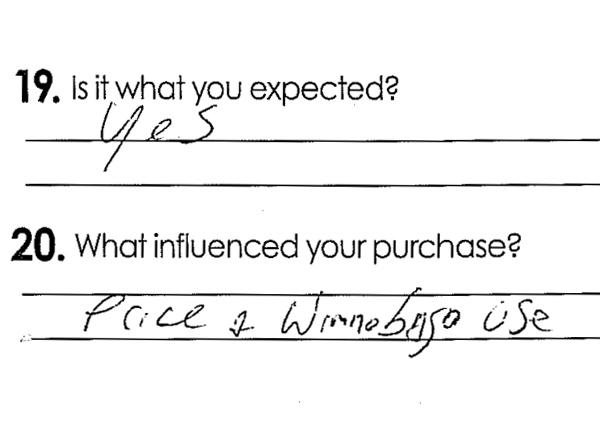 19. Is it what you expected?
Yes
20. What influenced your purchase?
Price & Winnebago use